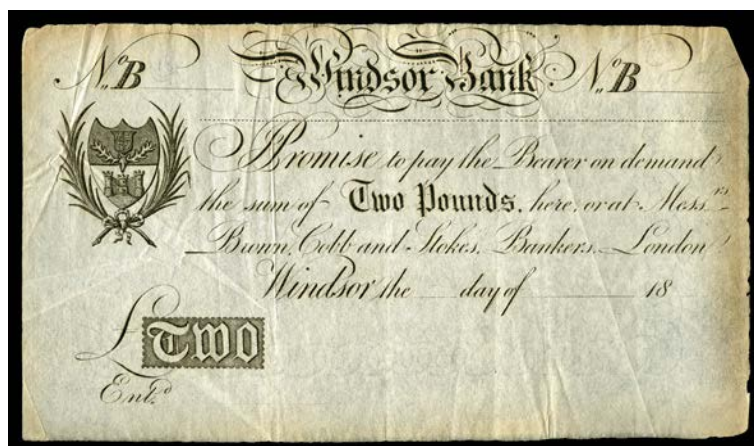 No B Windsor Bank No B
Promise to pay the Bearer on demand
the sum of Two Pounds, here, or at Messrs
Brown, Cobb and Stokes, Bankers, London
Windsor the day of 18
£ TWO
Entd